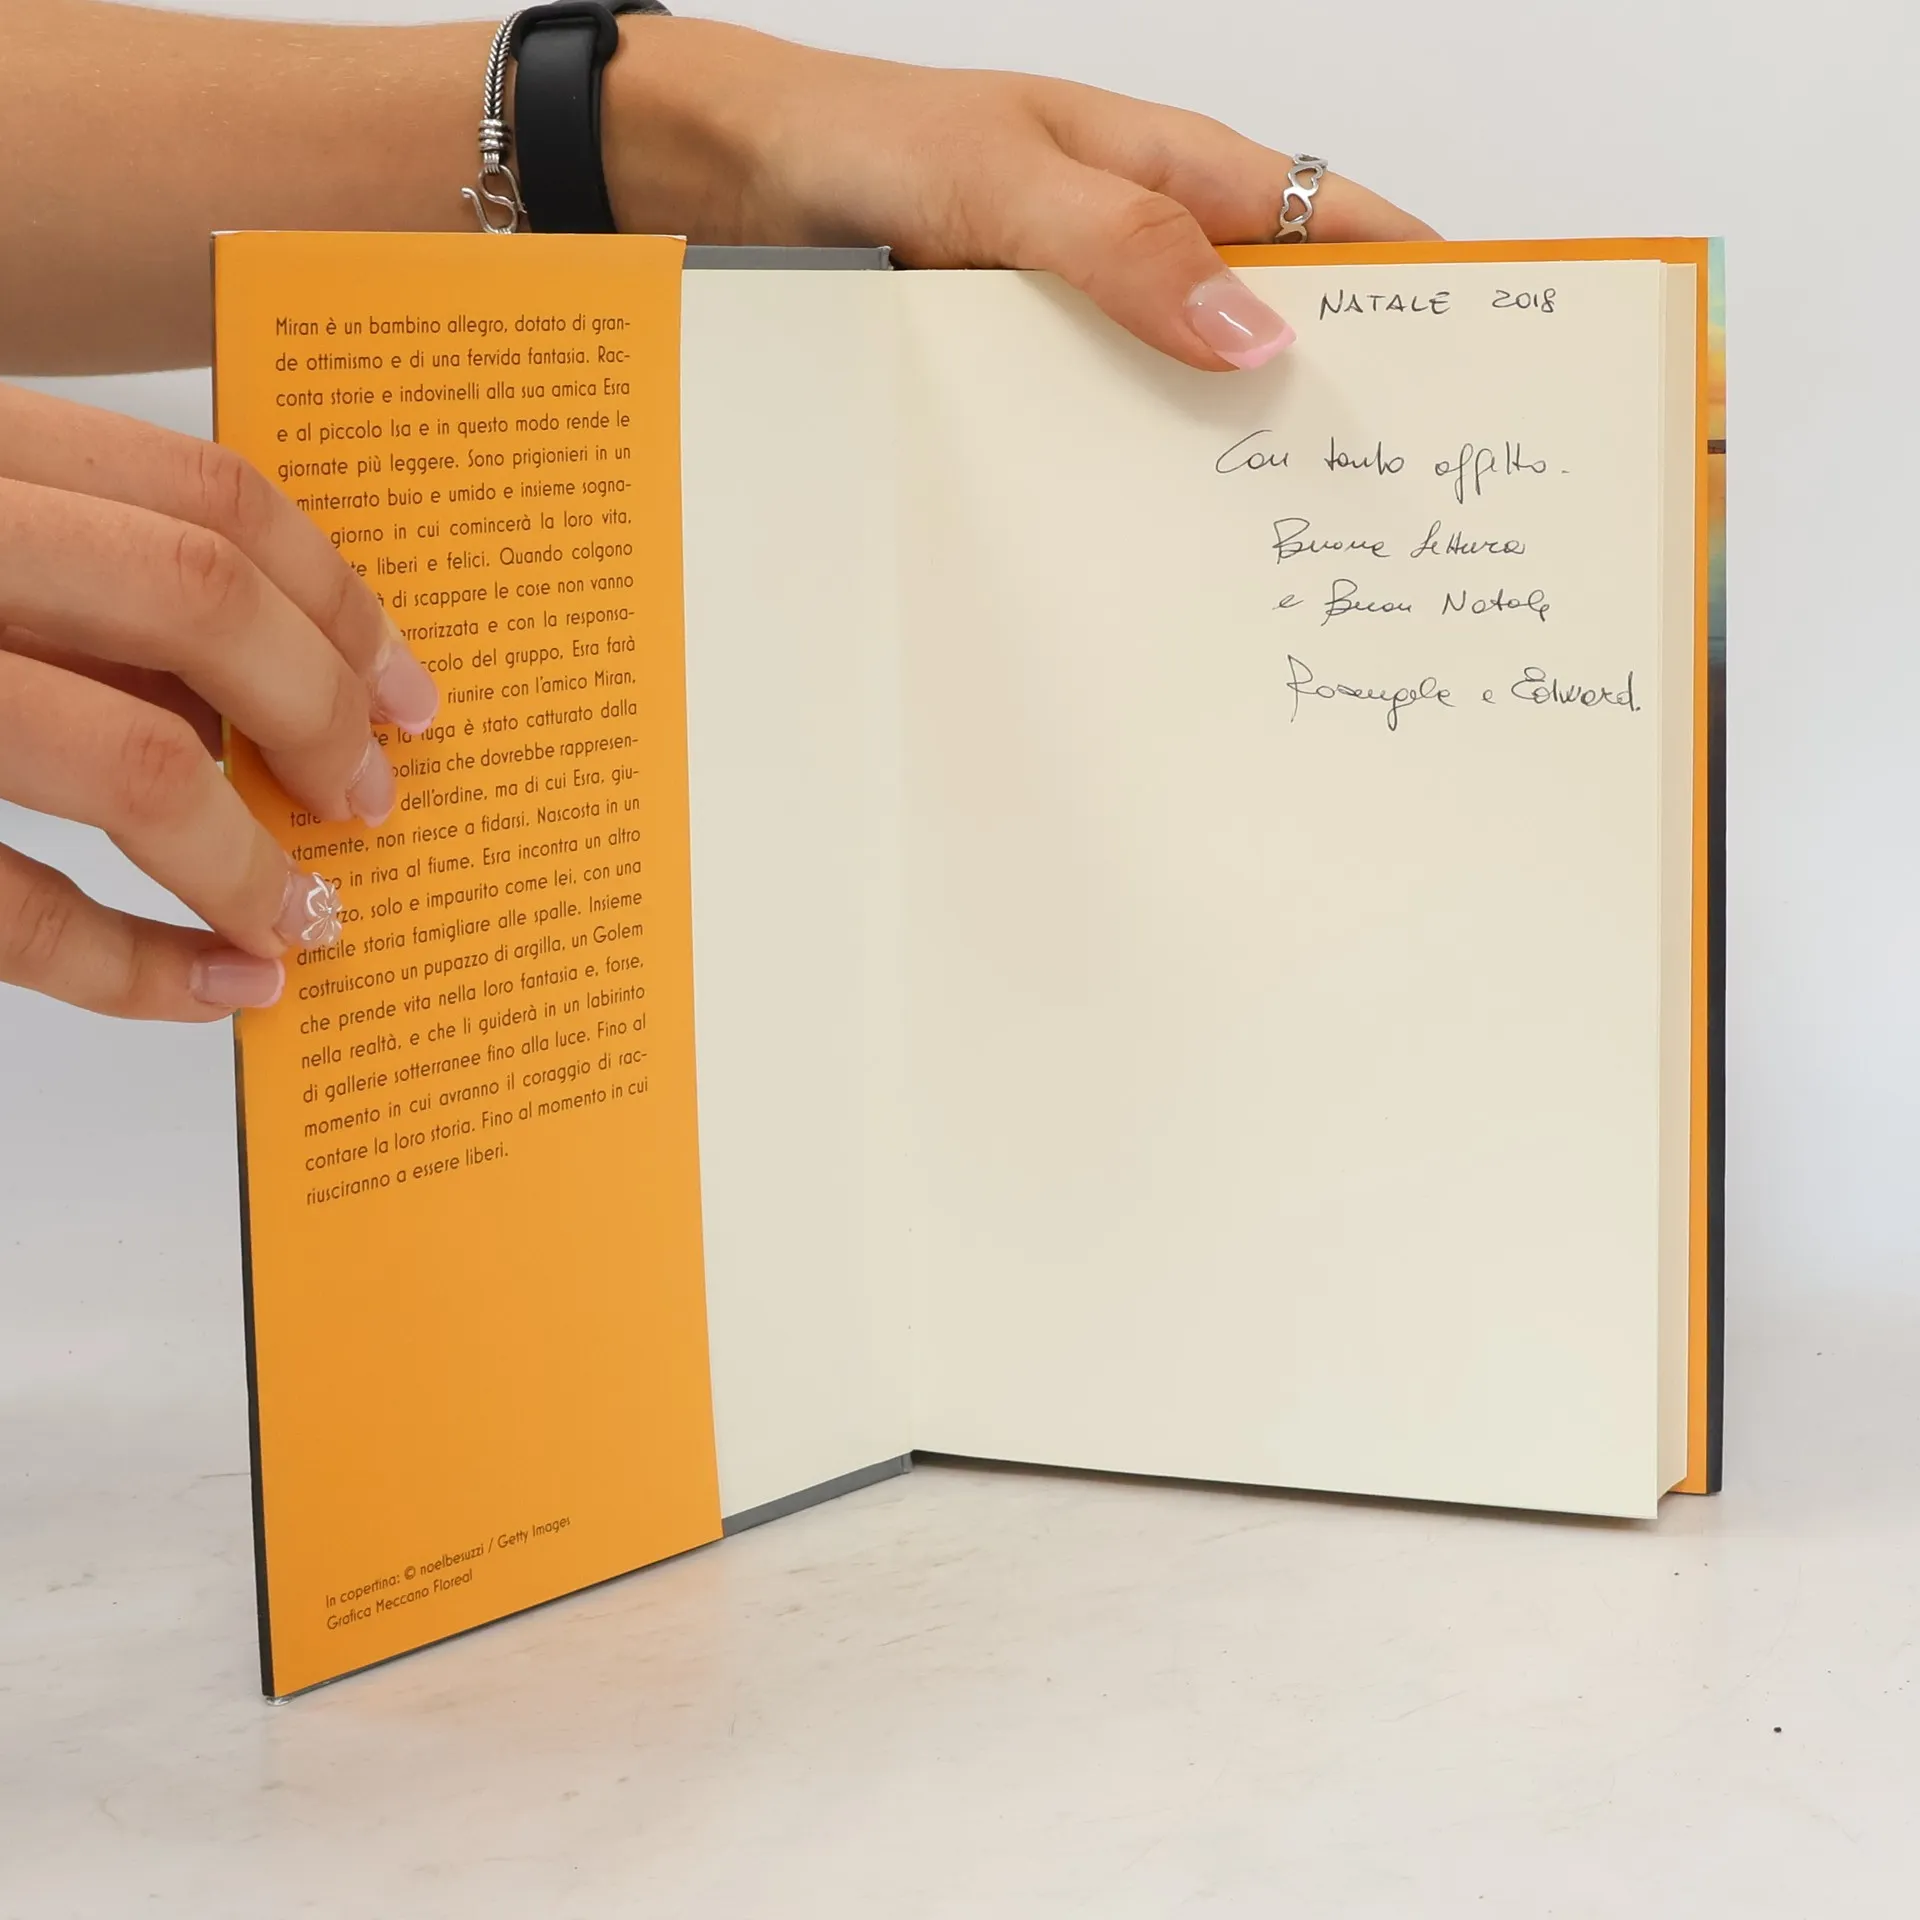 Miran è un bambino allegro, dotato di gran-
de ottimismo e di una fervida fantasia. Rac-
conta storie e indovinelli alla sua amica Esra
e al piccolo Isa e in questo modo rende le
giornate più leggere. Sono prigionieri in un
minterrato buio e umido e insieme sogna-
giorno in cui comincerà la loro vita,
te liberi e felici. Quando colgono
di scappare le cose non vanno
rrorizzata e con la responsa-
ccolo del gruppo, Esra farà
riunire con l'amico Miran,
te la fuga è stato catturato dalla
polizia che dovrebbe rappresen-
tare dell'ordine, ma di cui Esra, giu-
stamente, non riesce a fidarsi. Nascosta in un
in riva al fiume, Esra incontra un altro
zzo, solo e impaurito come lei, con una
difficile storia famigliare alle spalle. Insieme
costruiscono un pupazzo di argilla, un Golem
che prende vita nella loro fantasia e, forse,
nella realtà, e che li guiderà in un labirinto
di gallerie sotterranee fino alla luce. Fino al
momento in cui avranno il coraggio di rac-
contare la loro storia. Fino al momento in cui
riusciranno a essere liberi.
In copertina: © noelbesuzzi / Getty Images
Grafica Meccano Floreal
NATALE 2018
Con tanto affetto.
Buona lettura
e Buon Natale
Rosangela e Edward.